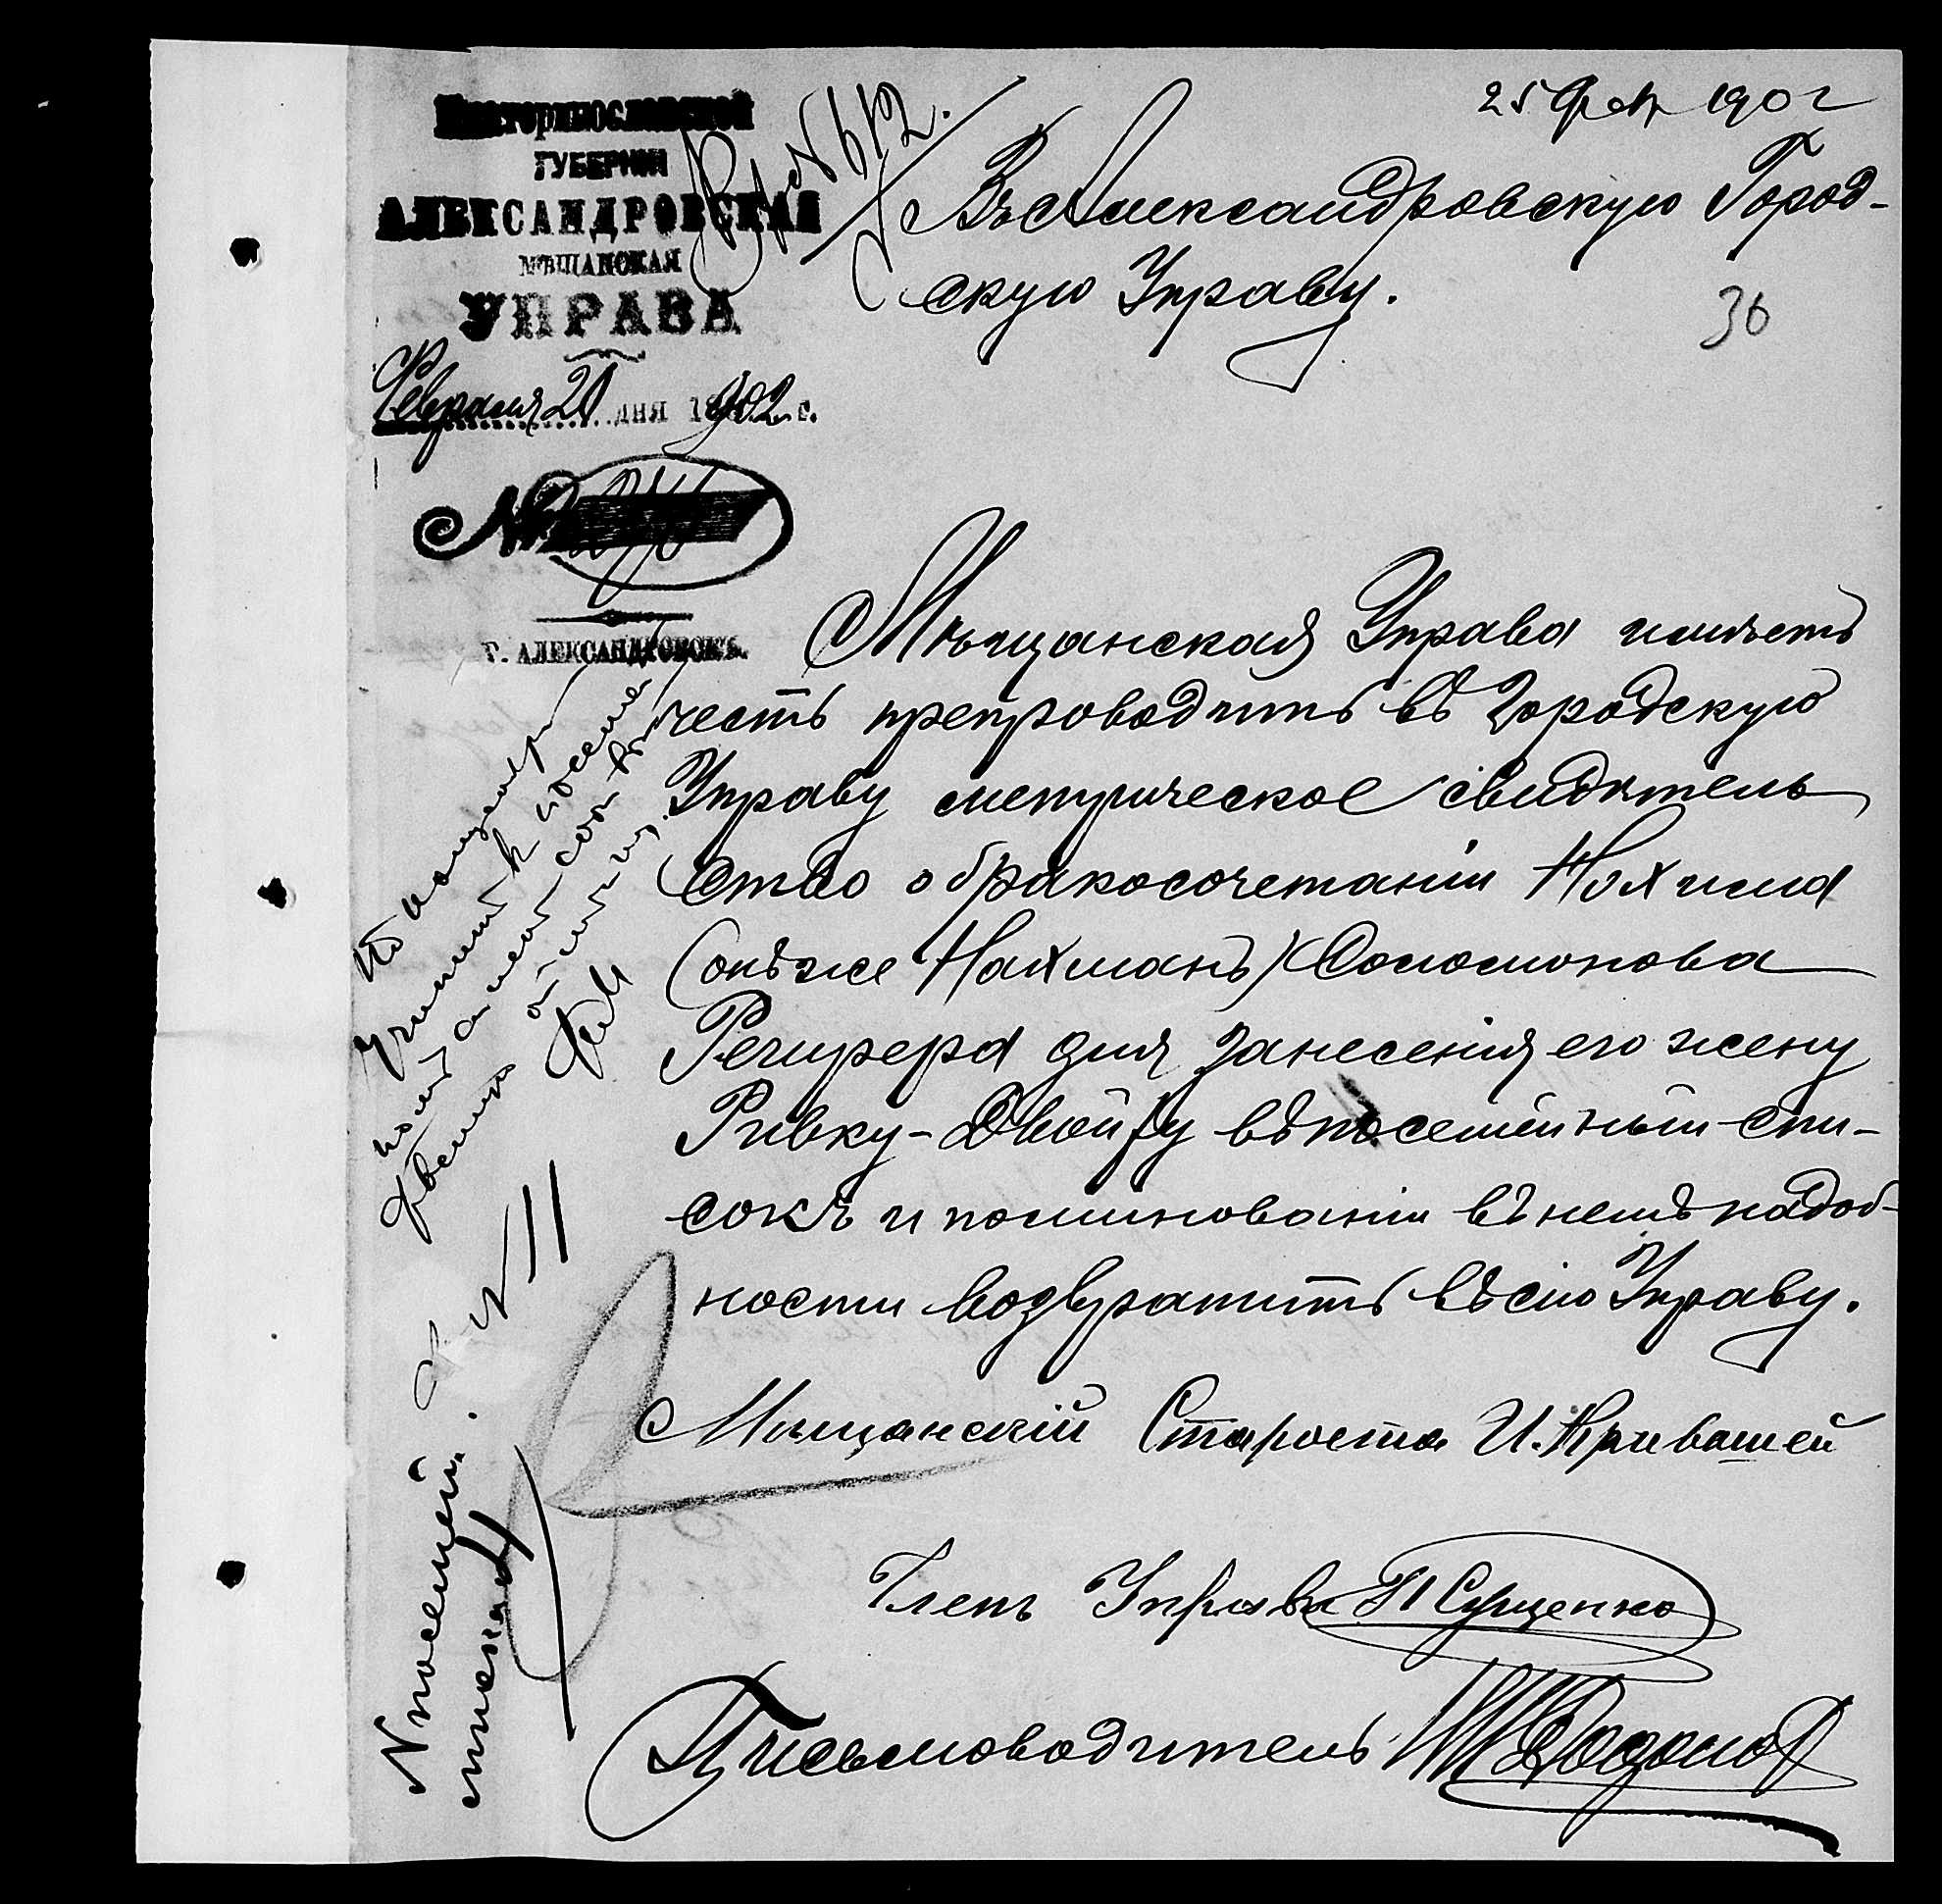 Екатеринославской
ГУБЕРНІИ
АЛЕКСАНДРОВСКАЯ
МѢЩАНСКАЯ
УПРАВА
Февраля 21 дня 1902 г.
№
Г. АЛЕКСАНДРОВСКЪ.
№ 612.
25 Фев 1902
Въ Александровскую Город-
скую Управу.
36
Мѣщанская Управа имѣетъ
честь препроводить въ Городскую
Управу метрическое свидѣтель
ство о бракосочетаніи Нохима
(онъ же Нахманъ) Соломонова
для занесенія его жену
Ривку-Двойру въ посемейный спи-
сокъ и по минованіи въ немъ надоб-
ности возвратить въ сію Управу.
Мѣщанскій Староста И. Кривошей
Членъ Управы П Сущенко
Письмоводитель
№ посемейн.
списка
№ 11